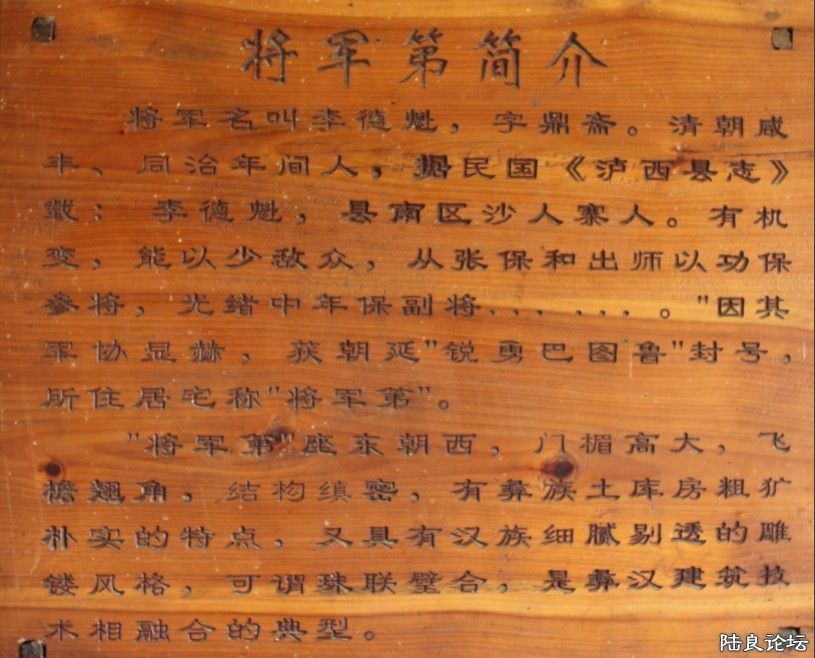 将军第简介
将军名叫李德魁，字鼎斋。清朝咸
丰、同治年间人，据民国《泸西县志》
载：李德魁，县南区沙人寨人。有机
变，能以少敌众，从张保和出师以功保
参将，光绪中年保副将......。"因其
军协显赫，获朝延"锐勇巴图鲁"封号，
所住居宅称"将军第"。
"将军第"座东朝西，门楣高大，飞
檐翘角，结构缜密，有彝族土库房粗犷
朴实的特点，又具有汉族细腻剔透的雕
镂风格，可谓珠联璧合，是彝汉建筑技
术相融合的典型。
陆良论坛